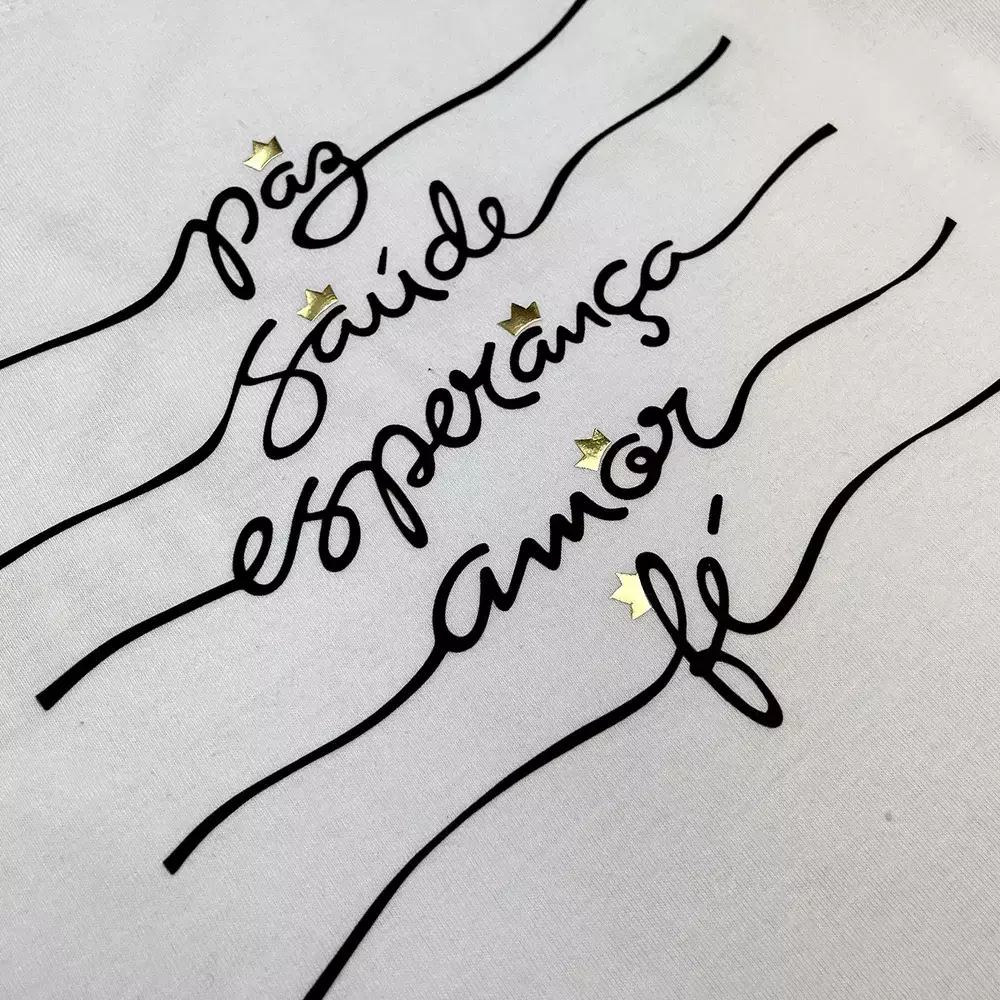 paz
saúde
esperança
amor
fé